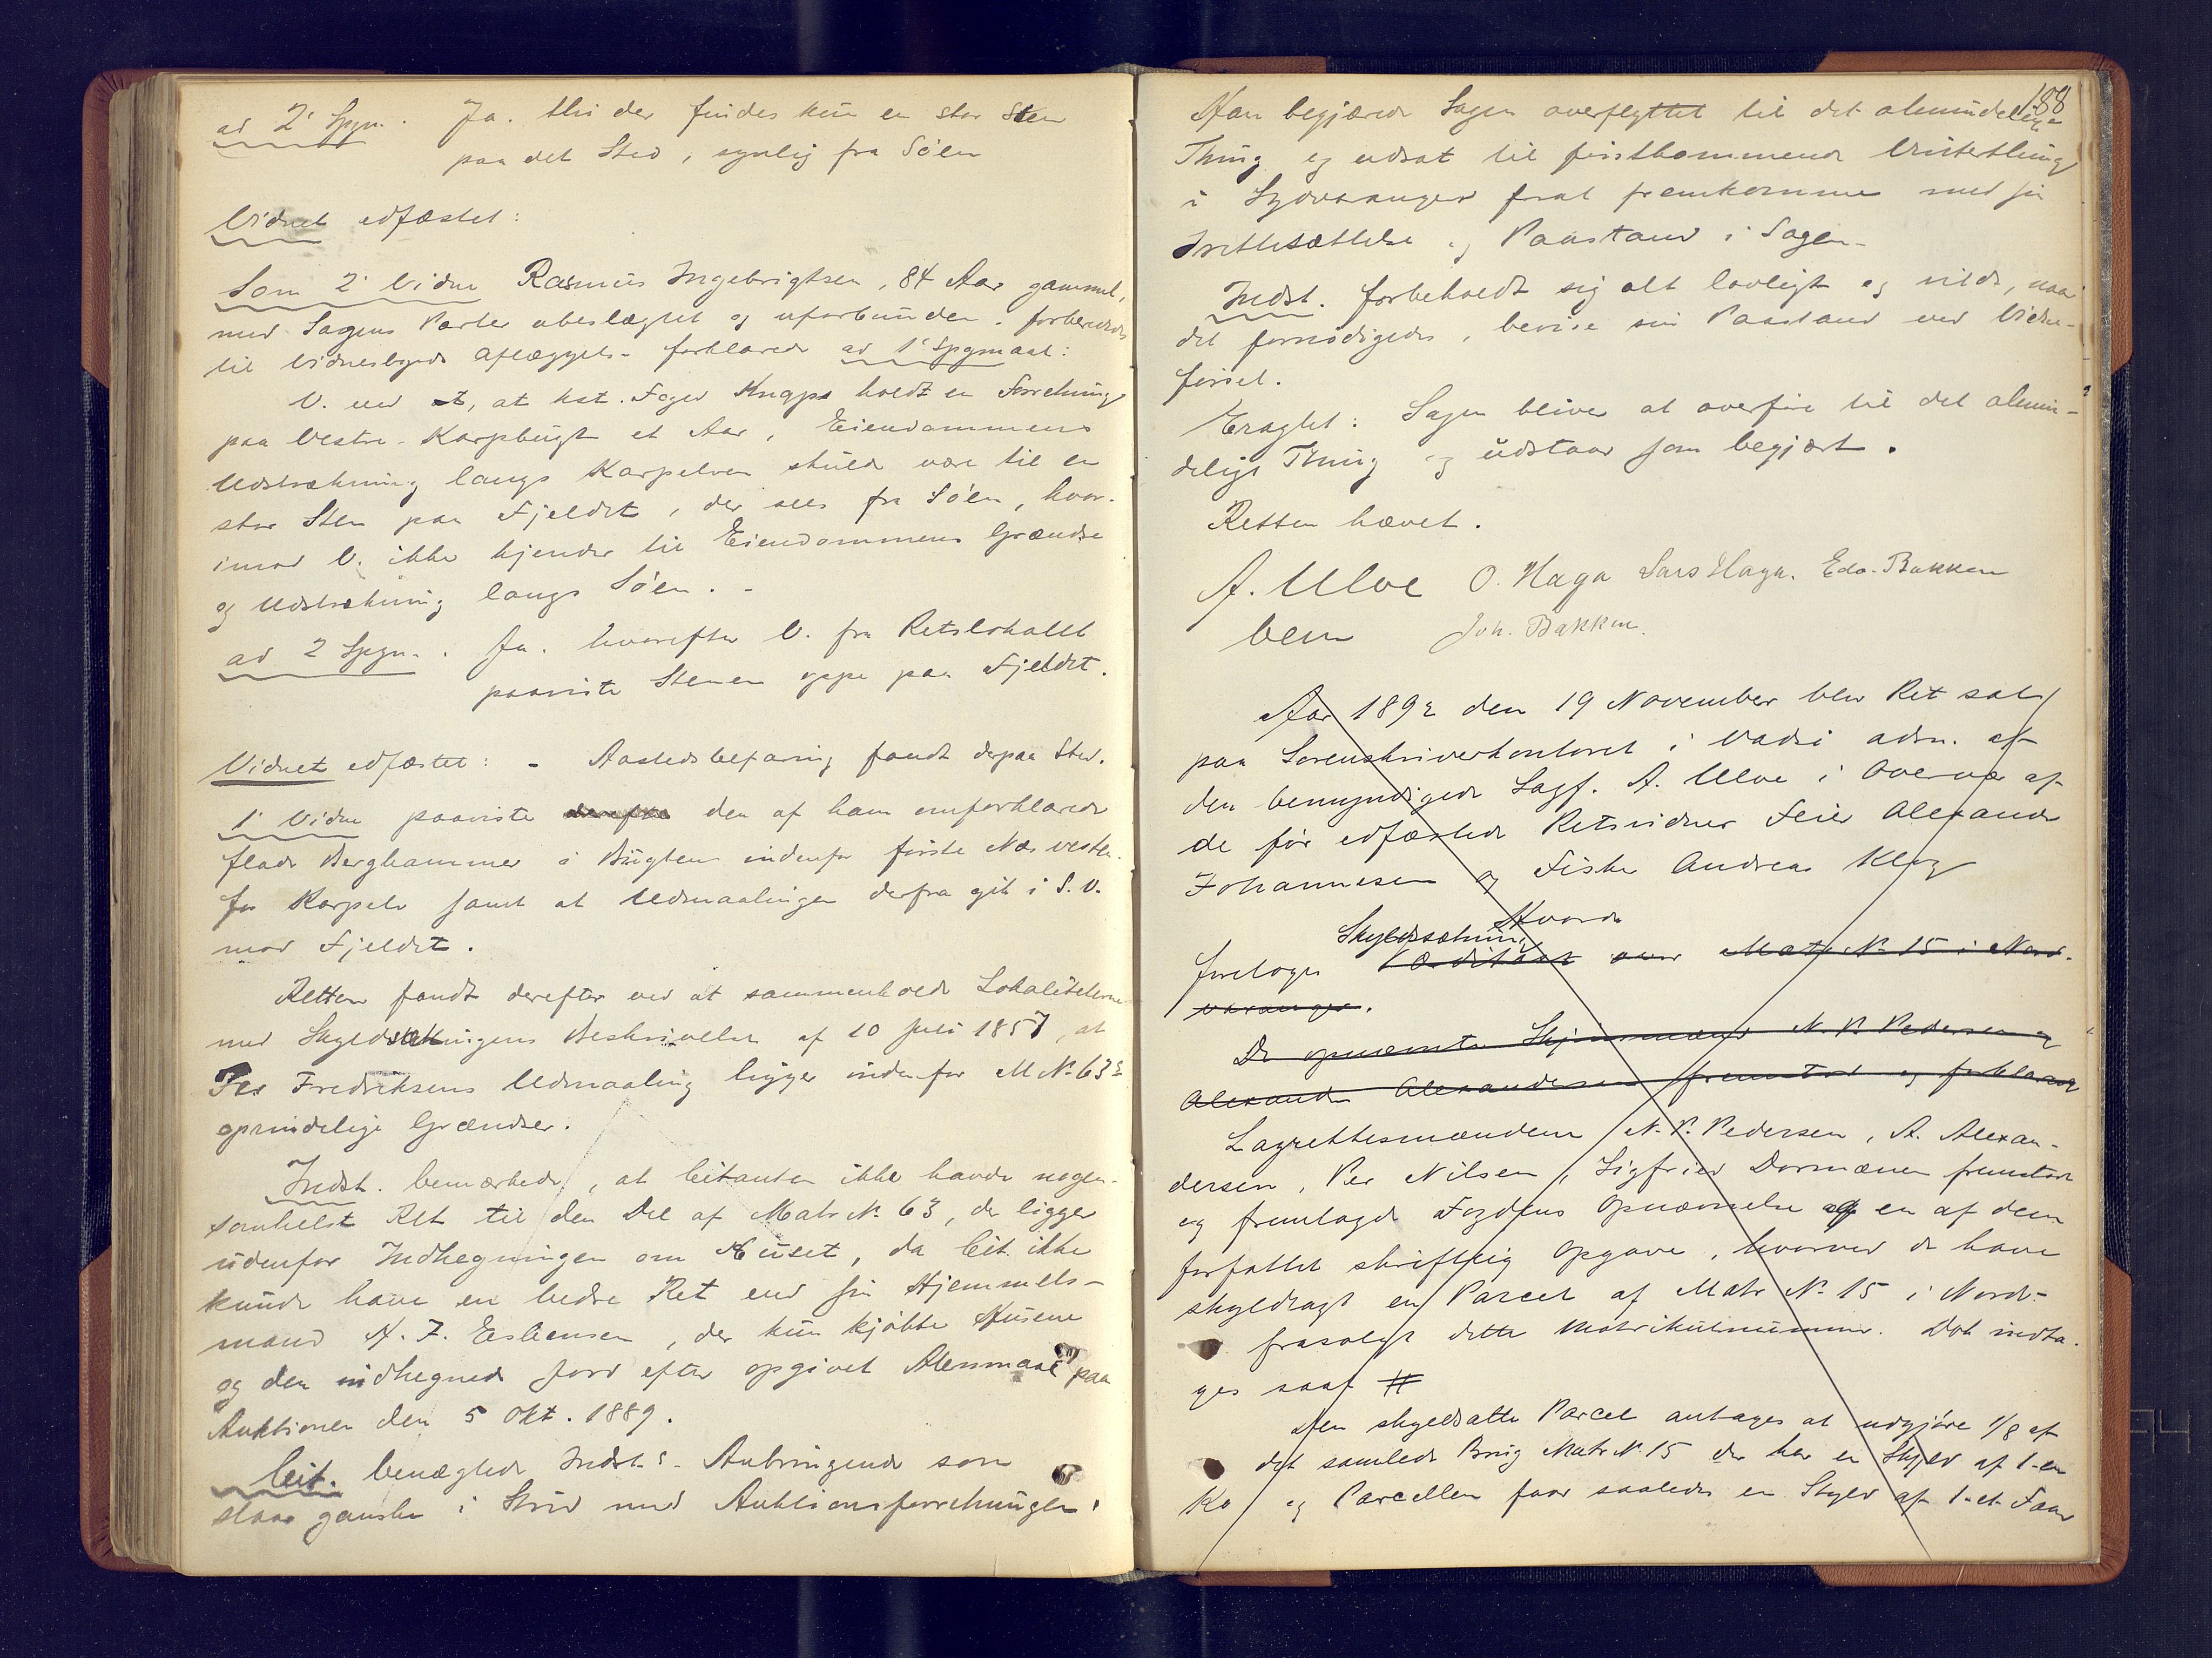 ad 2' Spgm. Ja. thi der findes kun en stor Sten
paa det Sted, synlig fra Søen
Vidnet edfæstet:
Som 2' Vidne Rasmus Ingebrigtsen, 84 Aar gammel,
med Sagens Parter ubeslægtet og uforbunden. forberedes
til Vidnesbyrds Aflæggelse forklarede ad 1' Spgmaal:
V. ved at, at kst. Foged Knaps holdt en Forretning
paa Vestre-Karpbugt et Aar, Eiendommens
Udstrækning langs Karpelven skulde være til en
stor Sten paa Fjeldet, der sees fra Søen, hvor-
imod V. ikke kjender til Eiendommens Grændse
og Udstrækning langs Søen. -
ad 2 Spgm. Ja. hvorefter V. fra Retslokalet
paaviste Stenen oppe paa Fjeldet.
Vidnet edfæstet: - Aastedsbefaring fandt derpaa Sted.
1' Vidne paaviste derefter den af ham omforklarede
flade Berghammer i Bugten indenfor første Næs vesten-
for Karpelv samt at Udmaalingen derfra gik i S.V.
mod Fjeldet.
Retten fandt derefter ved at sammenholde Lokaliteterne
med Skyldsætningens Beskrivelse af 10 Juli 1857, at
Per Fredriksens Udmaaling ligger indenfor M No 63s
oprindelige Grændser.
Indst. bemærkede, at Citanten ikke havde nogen-
somhelst Ret til den Del af Matr No 63, der ligger
udenfor Indhegningen om Huset, da Cit. ikke
kunde have en bedre Ret end sin Hjemmels-
mand A. F. Esbensen, der kun kjøbte Husene
og den indhegnede Jord efter opgivet Alenmaal paa
Auktionen den 5 Okt. 1889.
Cit. benægtede Indst.s Anbringende som
staar ganske i Strid med Auktionsforretningen.
188
Han begjærede Sagen overflyttet til det almindelige
Thing og udsat til førstkommende Vinterthing
i Sydvaranger forat fremkomme med sin
Irettesættelse og Paastand i Sagen-
Indst. forbeholdt sig alt lovligt og vilde, naar
det fornødigedes, bevise sin Paastand ved Vidne-
førsel.
Eragtet: Sagen bliver at overføre til det almin-
delige Thing og udstaar som begjært.
Retten hævet.
A. Ulve O. Haga Lars Haga. Edv. Bakken
bem Joh. Bakken.
Aar 1892 den 19 November blev Ret sat
paa Sorenskriverkontoret i Vadsø adm. af
den bemyndigede Sagf. A. Ulve i Overvær af
de før edfæstede Retsvidner Feier Alexander
Johannesen og Fisker Andreas Klog
Hvorda
Skyldsætning
foretoges Værditaxt over Matr No 15 i Nord-
varanger.
De opnævnte Skjønsmænd N. P. Pedersen og
Alexander Alexandersen fremstod og forklarede
Lagrettesmændene N. P. Pedersen, A. Alexan-
dersen, Per Nilsen, Sigfried Dormænen fremstod
og fremlagde Fogdens Opnævnelse og en af dem
forfattet skriftlig Opgave, hvorved de have
skyldlagt en Parcel af Matr No 15 i Nord-
frasolgt dette Matrikulnummer. Dok indta-
ges saal #
Den skyldsatte Parcel antages at udgjøre 1/8 af
det samlede Brug Matr No 15 der har en Skyld af 1-en
Ko og Parcellen faar saaledes en Skyld af 1-et Faar